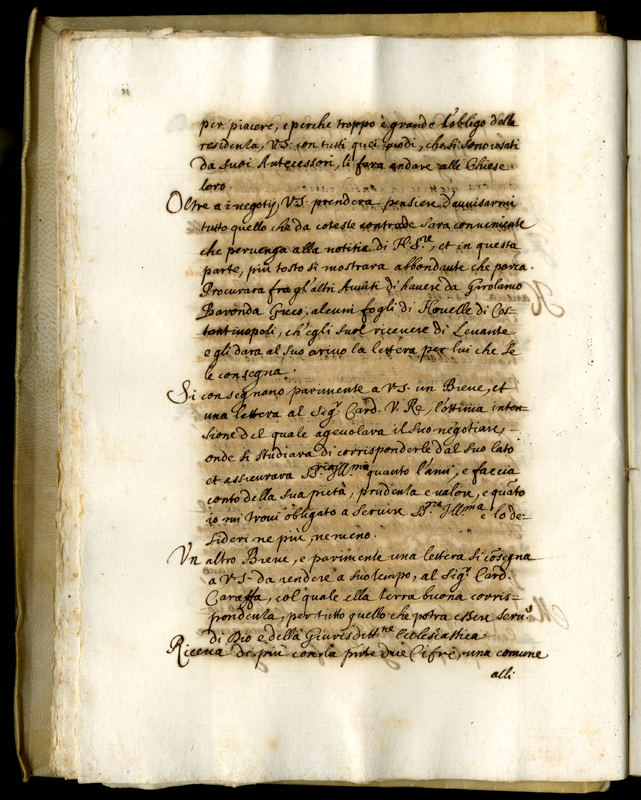 per piacere, e perche troppo è grande l'obligo della
residenza, V.S. con tutti quei modi, che si sono usati
da suoi Antecessori, li farà andare alle Chiese
loro.
Oltre a i negotij, V.S. prenderà pensiere d'avvisarmi
tutto quello che da coteste contrade sarà conveniente
che pervenga alla notitia di N. Sre, et in questa
parte, più tosto si mostrarà abbondante che parca.
Procurarà fra gl'altri Avvisi di havere da Girolamo
Greco, alcuni fogli di Novelle di Cos-
tantinopoli, ch'egli suol ricevere di Levante
e gli darà al suo arivo la lettera per lui che se
le consegna.
Si consegnano parimente a V.S. un Breve, et
una lettera al Sigr Card. V. Re, l'ottima inten-
sione del quale agevolarà il suo negotiare,
onde si studiarà di corrisponderle dal suo lato
et assicurarà quanto l'ami, e faccia
conto della sua pietà, prudenza e valore, e quāto
io mi trovi obligato a servire S. Illma, e lo de-
sideri ne più, ne meno.
Un altro Breve, e parimente una lettera si cōsegna
a V.S. da rendere a suo tempo, al Sigr Card.
Caraffa, col quale ella terrà buona corris-
pondenza, per tutto quello che potrà essere servo
di Dio e della Giurisdittne Ecclesiastica
Riceva di più con la pnte due Cifre, una comune
alli